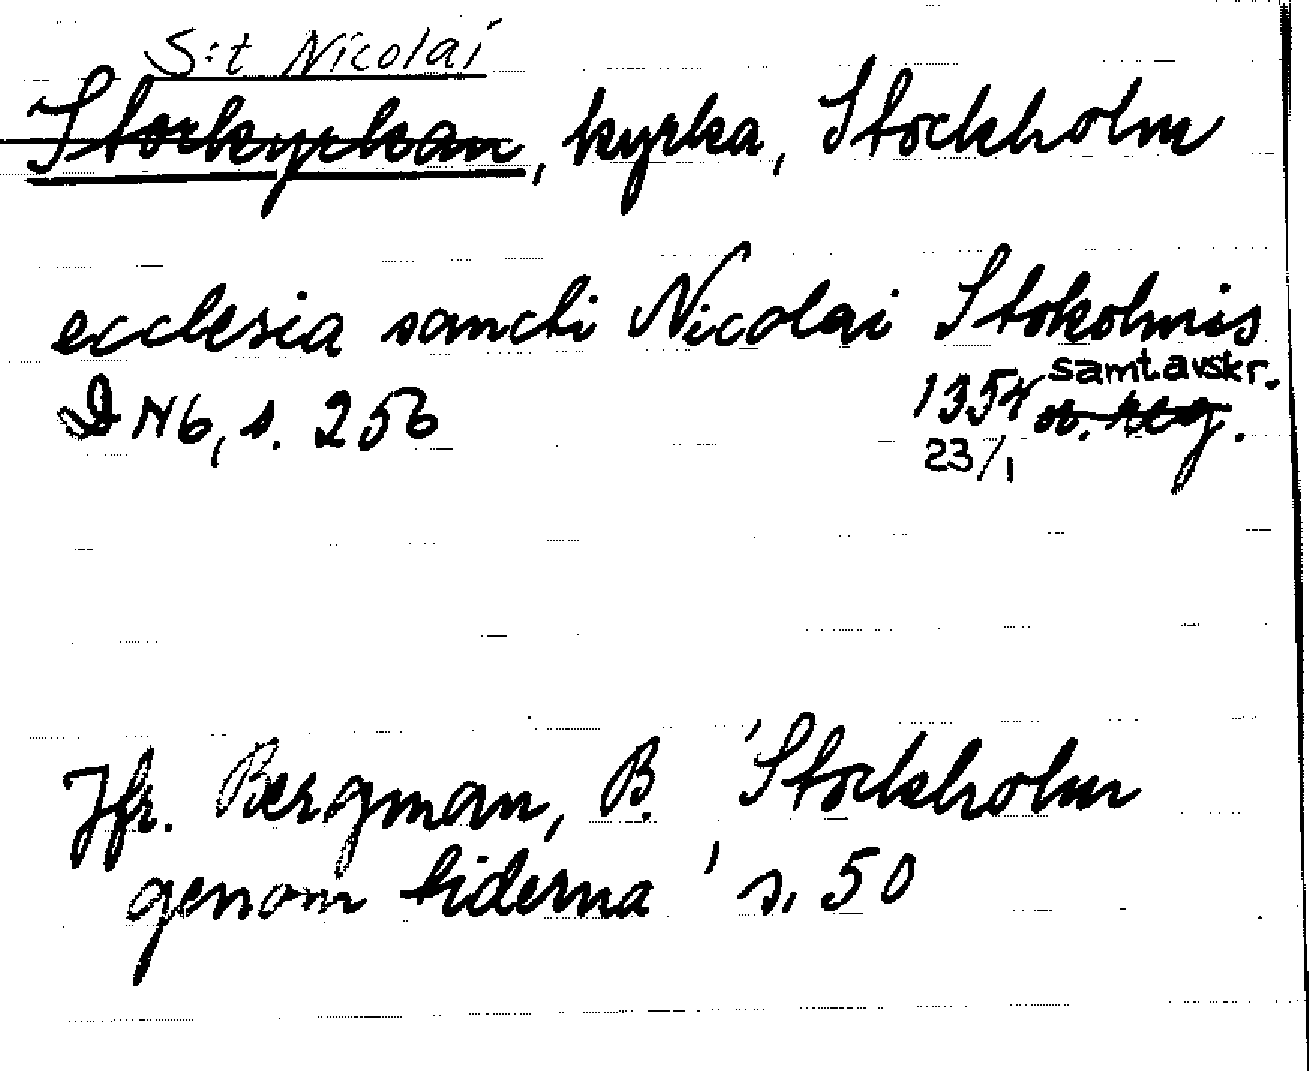 S:t Nicolai
Storkyrkan, kyrka, Stockholm
ecclesia sancti Nicolai Stokolmis
DN6, s. 256 1354 samt.avskr.
23/1
Jfr. Bergman, B. 'Stockholm
genom tiderna' s. 50